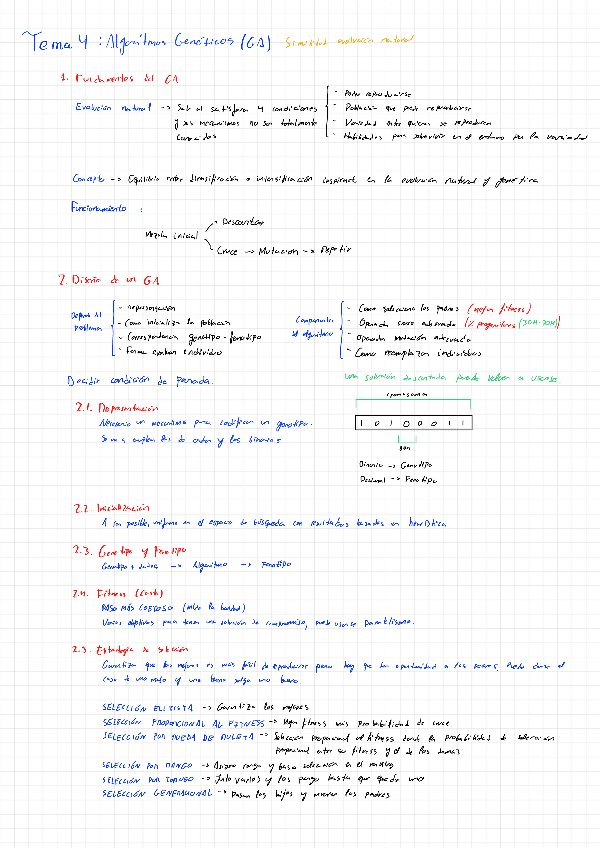 Tema 4: Algoritmos Genéticos (GA) Similitud evolución natural
1. Fundamentos del GA
Evolución natural -> Solo al satisfacer 4 condiciones
y sus mecanismos no son totalmente
conocidos
- Poder reproducirse
- Población que pueda reproducirse
- Variedad entre quienes se reproducen
- Habilidades para sobrevivir en el entorno por la variedad
Concepto -> Equilibrio entre diversificación e intensificación inspirado en la evolución natural y genética
Funcionamiento:
Mezcla inicial
Descartar
Cruce -> Mutación -> Repetir
2. Diseño de un GA
Definir el
problema
- Representación
- Como inicializar la población
- Correspondencia genotipo-fenotipo
- Forma evaluar individuo
Componentes
del algoritmo
- Como seleccionar los padres (mejor fitness)
- Operador cruce adecuado (2 progenitores)
- Operador mutación adecuado
- Como reemplazar individuos
Decidir condición de parada.
Una solución descartada puede volver a usarse.
2.1. Representación
Necesario un mecanismo para codificar un genotipo.
Se emplean los de orden y los binarios
cromosoma
1 0 1 0 0 0 1 1
gen
Binario -> Genotipo
Decimal -> Fenotipo
2.2. Inicialización
A ser posible, uniforme en el espacio de búsqueda con resultados basados en heurística
2.3. Genotipo y Fenotipo
Genotipo + datos -> Algoritmo -> Fenotipo
2.4. Fitness (Coste)
PASO MÁS COSTOSO (mide la bondad)
Varios objetivos para tener una solución de compromiso, puede usarse paralelismo.
2.5. Estrategia de selección
Garantiza que los mejores es más fácil de reproducirse pero hay que dar oportunidad a los peores. Puede darse el
caso de uno malo y uno bueno salga uno bueno
SELECCIÓN ELITISTA -> Garantiza los mejores
SELECCIÓN PROPORCIONAL AL FITNESS -> Mejor fitness más probabilidad de cruce
SELECCIÓN POR RUEDA DE RULETA -> Selección proporcional al fitness donde la probabilidad de selección
proporcional entre su fitness y el de los demás
SELECCIÓN POR RANGO -> Asigno rango y baso selección en el ranking
SELECCIÓN POR TORNEO -> Junto varios y los pongo hasta que quede uno
SELECCIÓN GENERACIONAL -> Pasan los hijos y mueren los padres